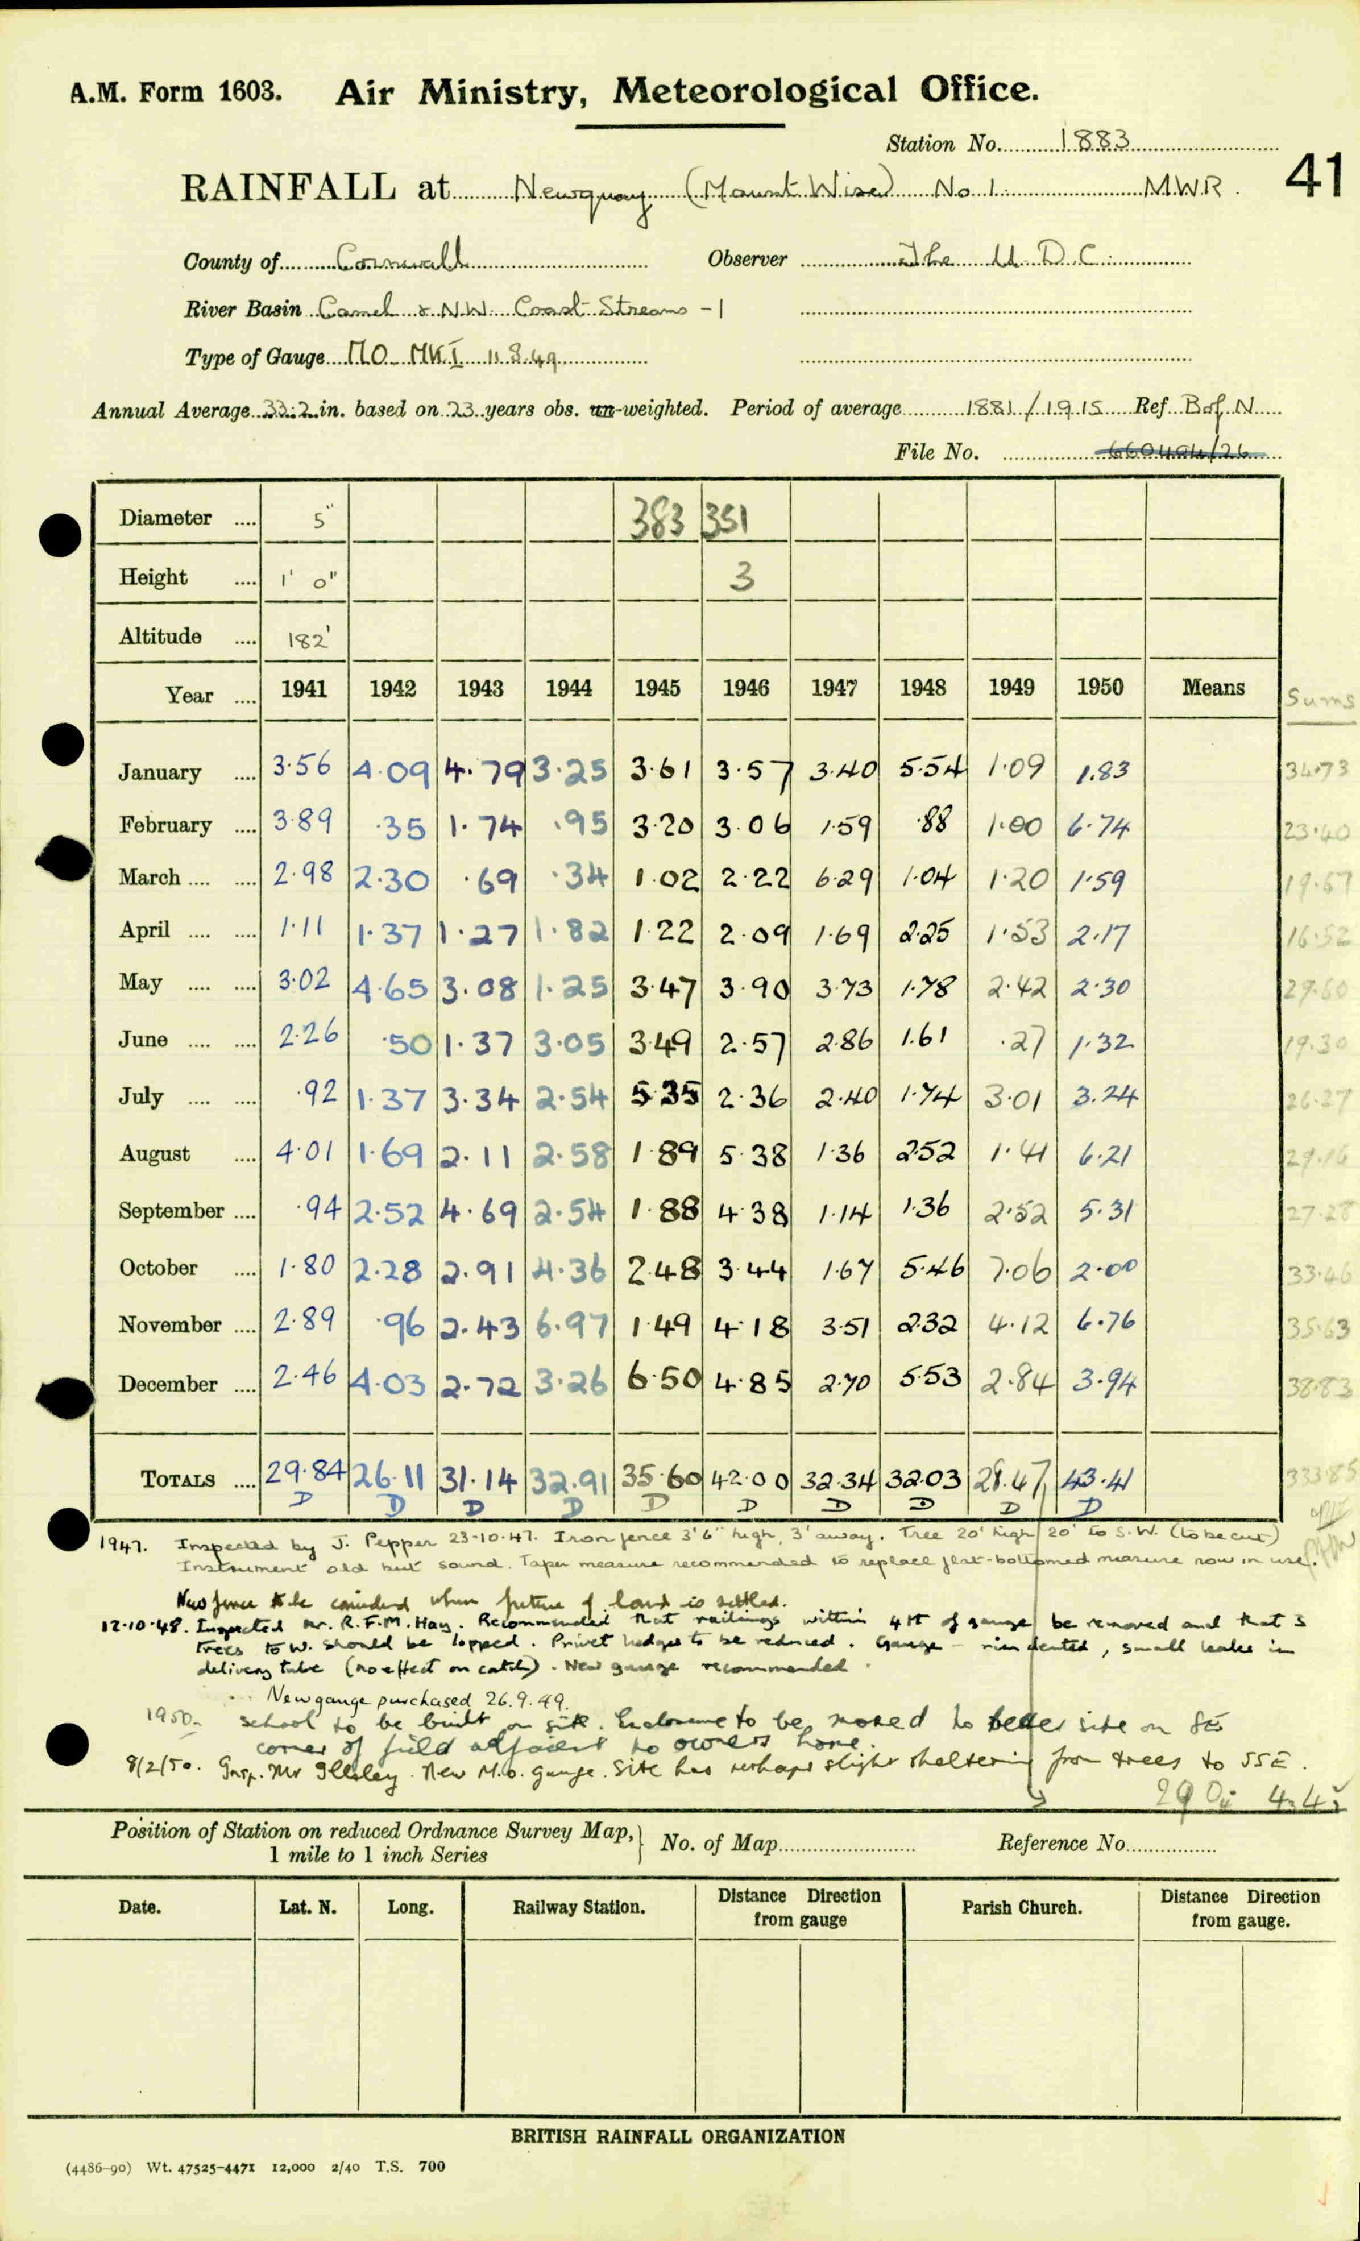 A.M. Form 1603. Air Ministry, Meteorological Office.
Station No. 1883
41
RAINFALL at Newquay (Mount Wise) No 1 MWR.
County of Cornwall Observer The U.D.C.
River Basin Camel & NW. Coast Streams -1
Type of Gauge MO MK I 11.8.49
Annual Average 33.2 in. based on 23 years obs. un-weighted. Period of average 1881/1915 Ref B of N
File No. 660494/26
Diameter .... 5" 383 351
Height .... 1' 0" 3
Altitude .... 182'
Year .... 1941 1942 1943 1944 1945 1946 1947 1948 1949 1950 Means Sums
January .... 3.56 4.09 4.79 3.25 3.61 3.57 3.40 5.54 1.09 1.83 34.73
February .... 3.89 .35 1.74 .95 3.20 3.06 1.59 .88 1.00 6.74 23.40
March .... .... 2.98 2.30 .69 .34 1.02 2.22 6.29 1.04 1.20 1.59 19.67
April .... .... 1.11 1.37 1.27 1.82 1.22 2.09 1.69 2.25 1.53 2.17 16.52
May .... .... 3.02 4.65 3.08 1.25 3.47 3.90 3.73 1.78 2.42 2.30 29.60
June .... .... 2.26 .50 1.37 3.05 3.49 2.57 2.86 1.61 .27 1.32 19.30
July .... .... .92 1.37 3.34 2.54 5.35 2.36 2.40 1.74 3.01 3.24 26.27
August .... 4.01 1.69 2.11 2.58 1.89 5.38 1.36 2.52 1.41 6.21 29.16
September .... .94 2.52 4.69 2.54 1.88 4.38 1.14 1.36 2.52 5.31 27.28
October .... 1.80 2.28 2.91 4.36 2.48 3.44 1.67 5.46 7.06 2.00 33.46
November .... 2.89 .96 2.43 6.97 1.49 4.18 3.51 2.32 4.12 6.76 35.63
December .... 2.46 4.03 2.72 3.26 6.50 4.85 2.70 5.53 2.84 3.94 38.83
TOTALS .... 29.84 26.11 31.14 32.91 35.60 42.00 32.34 32.03 28.47 43.41 333.85
D D D D D D D D D D
1947. Inspected by J. Pepper 23-10-47. Iron fence 3'6" high, 3' away. Tree 20' high 20' to S.W. (to be cut)
Instrument old but sound. Taper measure recommended to replace flat-bottomed measure now in use.
New fence to be considered when future of land is settled.
12-10-48. Inspected Mr. R.F.M. Hay. Recommended that railings within 4 ft of gauge be removed and that 3
trees to W. should be lopped. Privet hedges to be reduced. Gauge - rim dented, small leaks in
delivery tube (no effect on catch). New gauge recommended.
New gauge purchased 26.9.49.
1950. School to be built on site. Enclosure to be moved to better site on SE
corner of field adjacent to owners home.
8/2/50. Insp. Mr Illsley. New M.O. gauge. Site has perhaps slight sheltering from trees to SSE.
Position of Station on reduced Ordnance Survey Map, 1 mile to 1 inch Series } No. of Map Reference No.
Date. Lat. N. Long. Railway Station. Distance Direction from gauge Parish Church. Distance Direction from gauge.
BRITISH RAINFALL ORGANIZATION
(4486-90) Wt. 47525-4471 12,000 2/40 T.S. 700